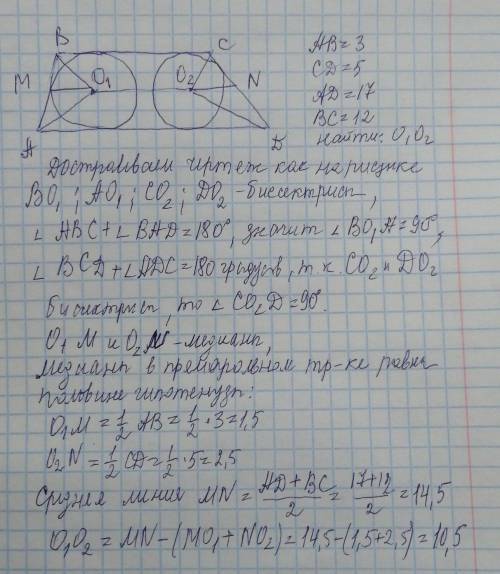 B
C
AB=3
M
O₁
O₂
N
CD=5
AD=17
BC=12
A
D
найти: O₁O₂
Достраиваем чертеж как на рисунке
BO₁; AO₁; CO₂; DO₂ - биссектрисы,
∠ABC+∠BAD=180°, значит ∠BO₁A=90°,
∠BCD+∠ADC=180 градусов, т.к. CO₂ и DO₂
биссектрисы, то ∠CO₂D=90°.
O₁M и O₂N - медианы,
медианы в прямоугольном тр-ке равны
половине гипотенузы:
O₁M = 1/2 AB = 1/2 · 3 = 1,5
O₂N = 1/2 CD = 1/2 · 5 = 2,5
Средняя линия MN = (AD+BC)/2 = (17+12)/2 = 14,5
O₁O₂ = MN-(MO₁+NO₂)=14,5-(1,5+2,5)=10,5